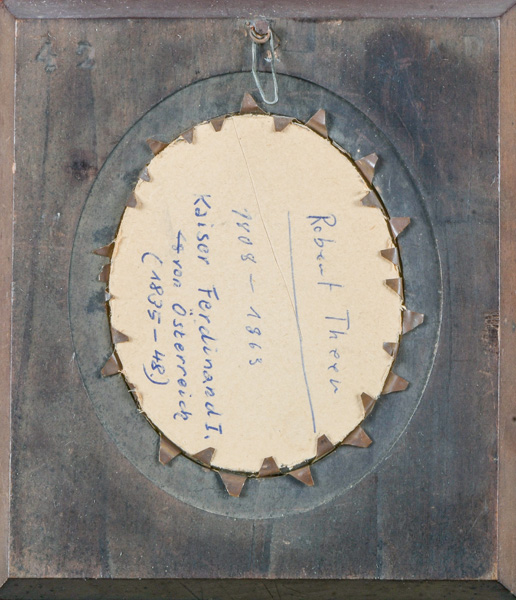 Robert Theer
1808 – 1863
Kaiser Ferdinand I.
von Österreich
(1835 – 48)